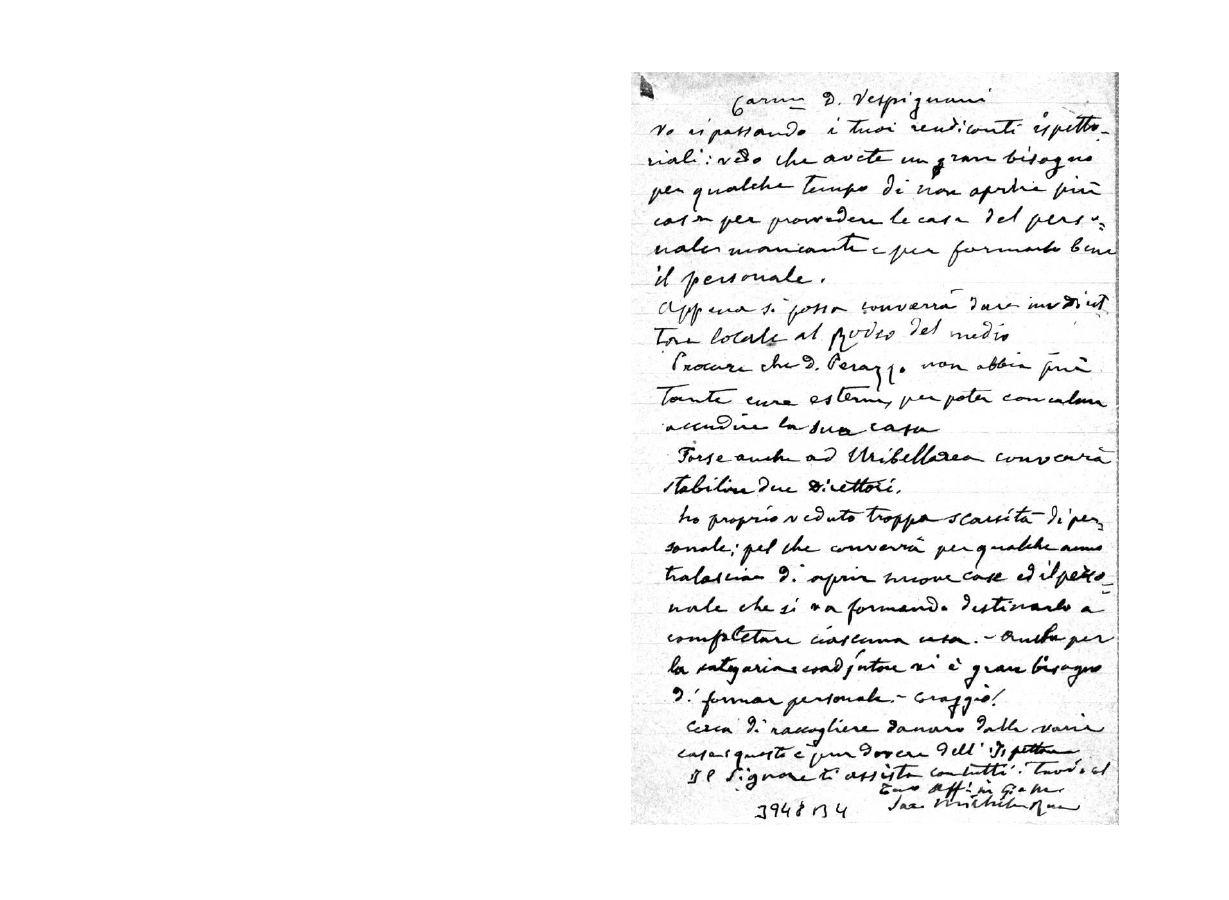 Carmo D. Vespignani
Vo ripassando i tuoi rendiconti ispetto-
riali: vedo che avete un gran bisogno
per qualche tempo di non aprire più
case per provvedere le case del perso=
nale mancante e per formarlo bene
il personale.
Appena si possa converrà dare un diret
tore locale al Rodeo del medio
Procura che D. Perazzo non abbia più
tante cure esterne, per poter con calma
accudire la sua casa
Forse anche ad Uribellarea converrà
stabilire due Direttori.
ho proprio veduto troppa scarsità di per=
sonale; pel che converrà per qualche anno
tralasciar di aprir nuove case ed il perso=
nale che si va formando destinarlo a
completare ciascuna casa. - Anche per
la categoria coadjutori vi è gran bisogno
di formar personale. - Coraggio!
Cerca di raccogliere danaro dalle varie
case: questo è pur dovere dell' Ispettore
Il Signore ti assista con tutti i tuoi
Tuo Aff. in G. e M.
Sac. Michele Rua
3948 B4